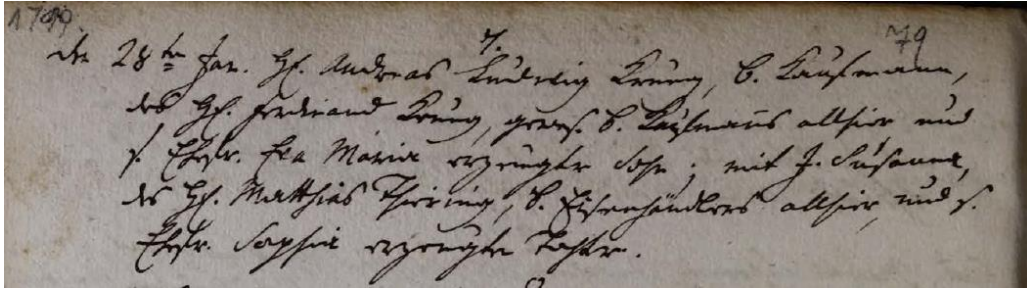 1799. 79
7.
den 28ten Jan. H. Andreas Ludwig Krung, b. Kaufmann,
des H. Ferdinand Krung, gewes. b. Kaufmanns allhier und
s. Ehefr. Eva Maria erzeugter Sohn; mit J. Susanna,
des H. Matthias Thiering, b. Eisenhändlers allhier, und s.
Ehefr. Sophia erzeugte Tochter.